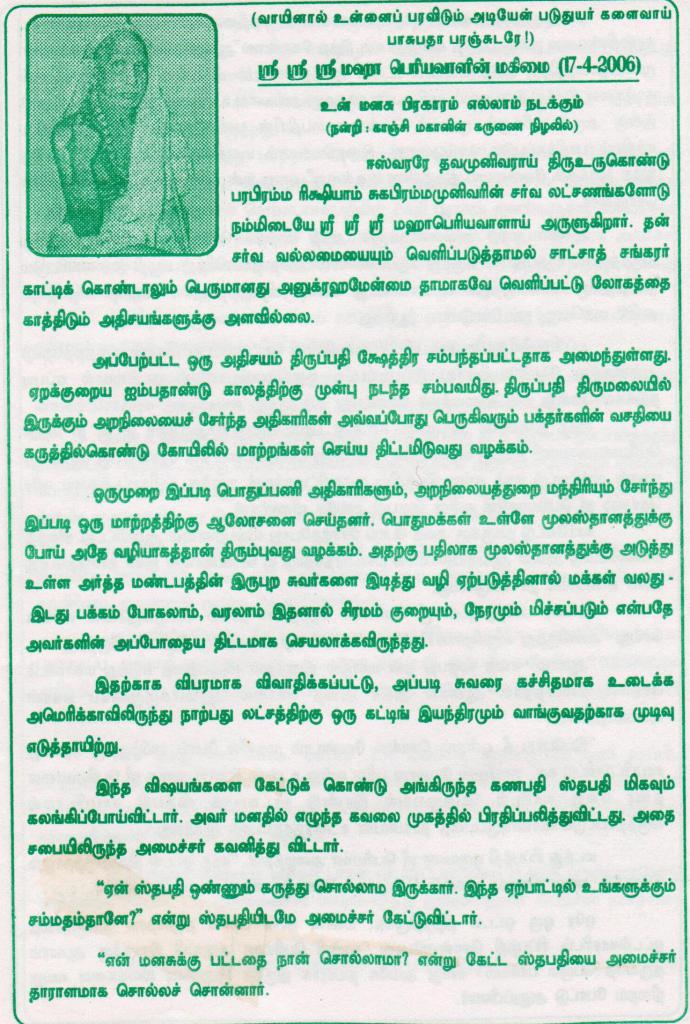 (வாயினால் உன்னைப் பரவிடும் அடியேன் படுதுயர் களைவாய்
பாசுபதா பரஞ்சுடரே!)
ஸ்ரீ ஸ்ரீ ஸ்ரீ மஹா பெரியவாளின் மகிமை (17-4-2006)
உன் மனசு பிரகாரம் எல்லாம் நடக்கும்
(நன்றி : காஞ்சி மகானின் கருணை நிழலில்)
ஈஸ்வரரே தவமுனிவராய் திருஉருகொண்டு
பரபிரம்ம ரிக்ஷியாம் சுகபிரம்மமுனிவரின் சர்வ லட்சணங்களோடு
நம்மிடையே ஸ்ரீ ஸ்ரீ ஸ்ரீ மஹாபெரியவாளாய் அருளுகிறார். தன்
சர்வ வல்லமையையும் வெளிப்படுத்தாமல் சாட்சாத் சங்கரர்
காட்டிக் கொண்டாலும் பெருமானது அனுக்ரஹமேன்மை தாமாகவே வெளிப்பட்டு லோகத்தை
காத்திடும் அதிசயங்களுக்கு அளவில்லை.
அப்பேற்பட்ட ஒரு அதிசயம் திருப்பதி க்ஷேத்திர சம்பந்தப்பட்டதாக அமைந்துள்ளது.
ஏறக்குறைய ஐம்பதாண்டு காலத்திற்கு முன்பு நடந்த சம்பவமிது. திருப்பதி திருமலையில்
இருக்கும் அறநிலையைச் சேர்ந்த அதிகாரிகள் அவ்வப்போது பெருகிவரும் பக்தர்களின் வசதியை
கருத்தில்கொண்டு கோயிலில் மாற்றங்கள் செய்ய திட்டமிடுவது வழக்கம்.
ஒருமுறை இப்படி பொதுப்பணி அதிகாரிகளும், அறநிலையத்துறை மந்திரியும் சேர்ந்து
இப்படி ஒரு மாற்றத்திற்கு ஆலோசனை செய்தனர். பொதுமக்கள் உள்ளே மூலஸ்தானத்துக்கு
போய் அதே வழியாகத்தான் திரும்புவது வழக்கம். அதற்கு பதிலாக மூலஸ்தானத்துக்கு அடுத்து
உள்ள அர்த்த மண்டபத்தின் இருபுற சுவர்களை இடித்து வழி ஏற்படுத்தினால் மக்கள் வலது -
இடது பக்கம் போகலாம், வரலாம் இதனால் சிரமம் குறையும், நேரமும் மிச்சப்படும் என்பதே
அவர்களின் அப்போதைய திட்டமாக செயலாக்கவிருந்தது.
இதற்காக விபரமாக விவாதிக்கப்பட்டு, அப்படி சுவரை கச்சிதமாக உடைக்க
அமெரிக்காவிலிருந்து நாற்பது லட்சத்திற்கு ஒரு கட்டிங் இயந்திரமும் வாங்குவதற்காக முடிவு
எடுத்தாயிற்று.
இந்த விஷயங்களை கேட்டுக் கொண்டு அங்கிருந்த கணபதி ஸ்தபதி மிகவும்
கலங்கிப்போய்விட்டார். அவர் மனதில் எழுந்த கவலை முகத்தில் பிரதிப்பலித்துவிட்டது. அதை
சபையிலிருந்த அமைச்சர் கவனித்து விட்டார்.
“ஏன் ஸ்தபதி ஒண்ணும் கருத்து சொல்லாம இருக்கார். இந்த ஏற்பாட்டில் உங்களுக்கும்
சம்மதம்தானே?” என்று ஸ்தபதியிடமே அமைச்சர் கேட்டுவிட்டார்.
“என் மனசுக்கு பட்டதை நான் சொல்லாமா? என்று கேட்ட ஸ்தபதியை அமைச்சர்
தாராளமாக சொல்லச் சொன்னார்.